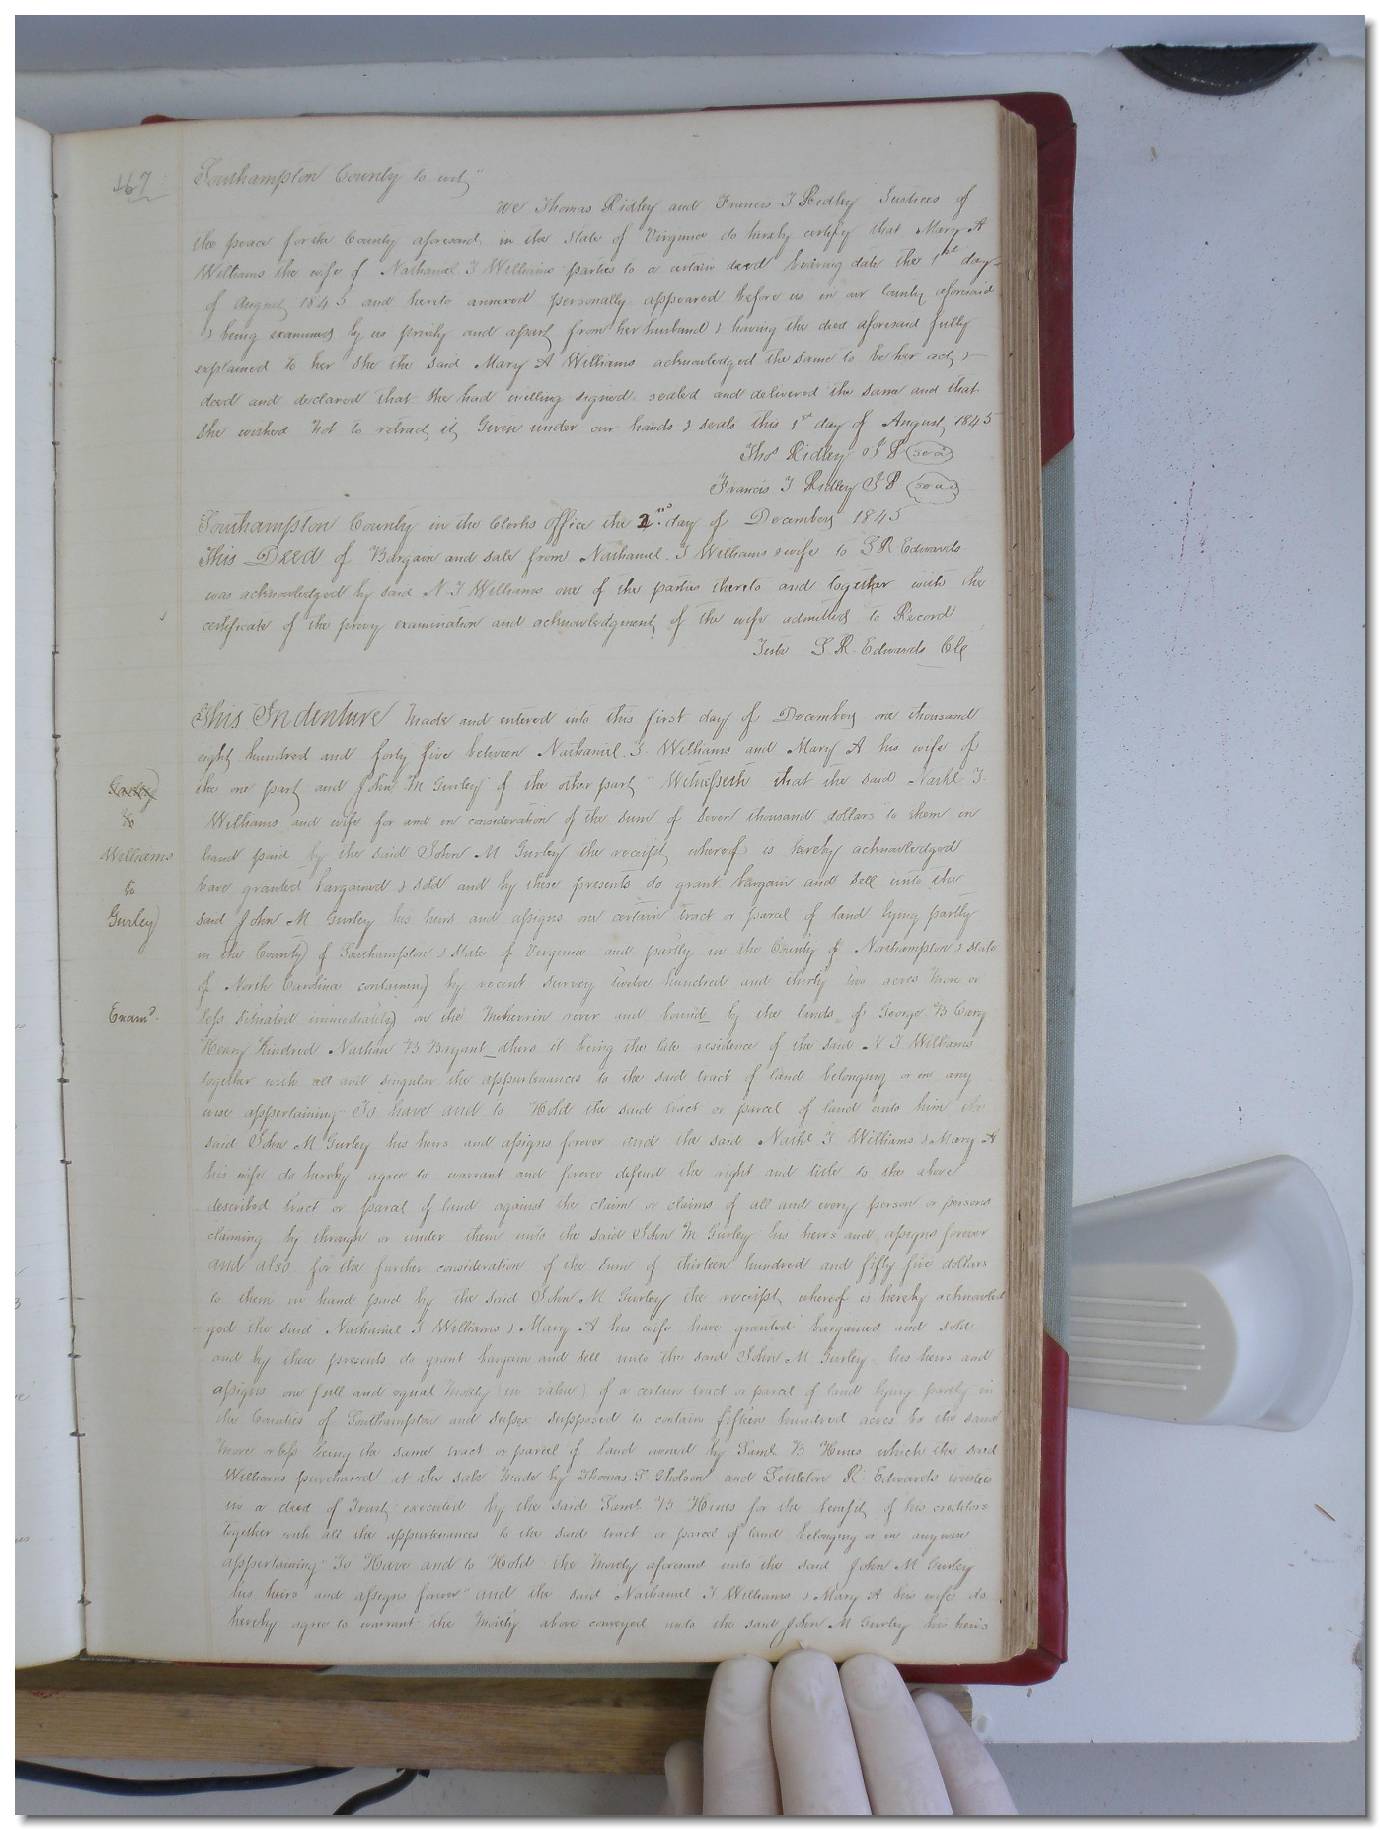 167
Southampton County to wit"
We Thomas Ridley and Francis T Ridley Justices of
the peace for the County aforesaid in the State of Virginia do hereby certify that Mary A
Williams the wife of Nathaniel T Williams parties to a certain deed bearing date the 1st day
of August 1845 and hereto annexed personally appeared before us in our County aforesaid
& being examined by us privily and apart from her husband & having the deed aforesaid fully
explained to her She the said Mary A Williams acknowledged the same to be her act &
deed and declared that she had willing signed sealed and delivered the same and that
She wished not to retract it Given under our hands & seals this 1st day of August 1845
Thos Ridley J P (seal)
Francis T Ridley J P (seal)
Southampton County in the Clerks office the 2nd day of December 1845
This Deed of Bargain and sale from Nathaniel T Williams & wife to L R Edwards
was acknowledged by said N T Williams one of the parties thereto and together with the
certificate of the privy examination and acknowledgment of the wife admitted to Record
Teste L R Edwards Clk
This Indenture Made and entered into this first day of December one thousand
eight hundred and forty five between Nathaniel T Williams and Mary A his wife of
the one part and John M Gurley of the other part" Witnesseth that the said Nathl T
Williams and wife for and in consideration of the sum of Seven thousand dollars to them in
to
Williams
hand paid by the said John M Gurley the receipt whereof is hereby acknowledged
to
have granted bargained & sold and by these presents do grant bargain and sell unto the
Gurley
said John M Gurley his heirs and assigns one certain tract or parcel of land lying partly
in the County of Southampton & State of Virginia and partly in the County of Northampton & State
of North Carolina containing by recent survey twelve hundred and thirty two acres more or
Examd.
less situated immediately on the Meherrin river and bound by the lands of George B Cary
Henry Kindred Nathan B Bryant others it being the late residence of the said N T Williams
together with all and singular the appurtenances to the said tract of land belonging or in any
wise appertaining To have and to Hold the said tract or parcel of land unto him the
said John M Gurley his heirs and assigns forever and the said Nathl T Williams & Mary A
his wife do hereby agree to warrant and forever defend the right and title to the above
described tract or parcel of land against the claim or claims of all and every person or persons
claiming by through or under them unto the said John M Gurley his heirs and assigns forever
and also for the further consideration of the sum of thirteen hundred and fifty five dollars
to them in hand paid by the said John M Gurley the receipt whereof is hereby acknowled
ged the said Nathaniel T Williams & Mary A his wife have granted bargained and sold
and by these presents do grant bargain and sell unto the said John M Gurley his heirs and
assigns one full and equal moiety (in value) of a certain tract or parcel of land lying partly in
the Counties of Southampton and Sussex supposed to contain fifteen hundred acres be the same
more or less being the same tract or parcel of land owned by Saml B Hines which the said
Williams purchased at the sale made by Thomas P Gholson and Littleton R Edwards trustees
in a deed of Trust executed by the said Saml B Hines for the benefit of his creditors
together with all the appurtenances to the said tract or parcel of land belonging or in anywise
appertaining" To Have and to Hold the Moiety aforesaid unto the said John M Gurley
his heirs and assigns forever" and the said Nathaniel T Williams & Mary A his wife do
hereby agree to warrant the Moity above conveyed unto the said John M Gurley his heirs